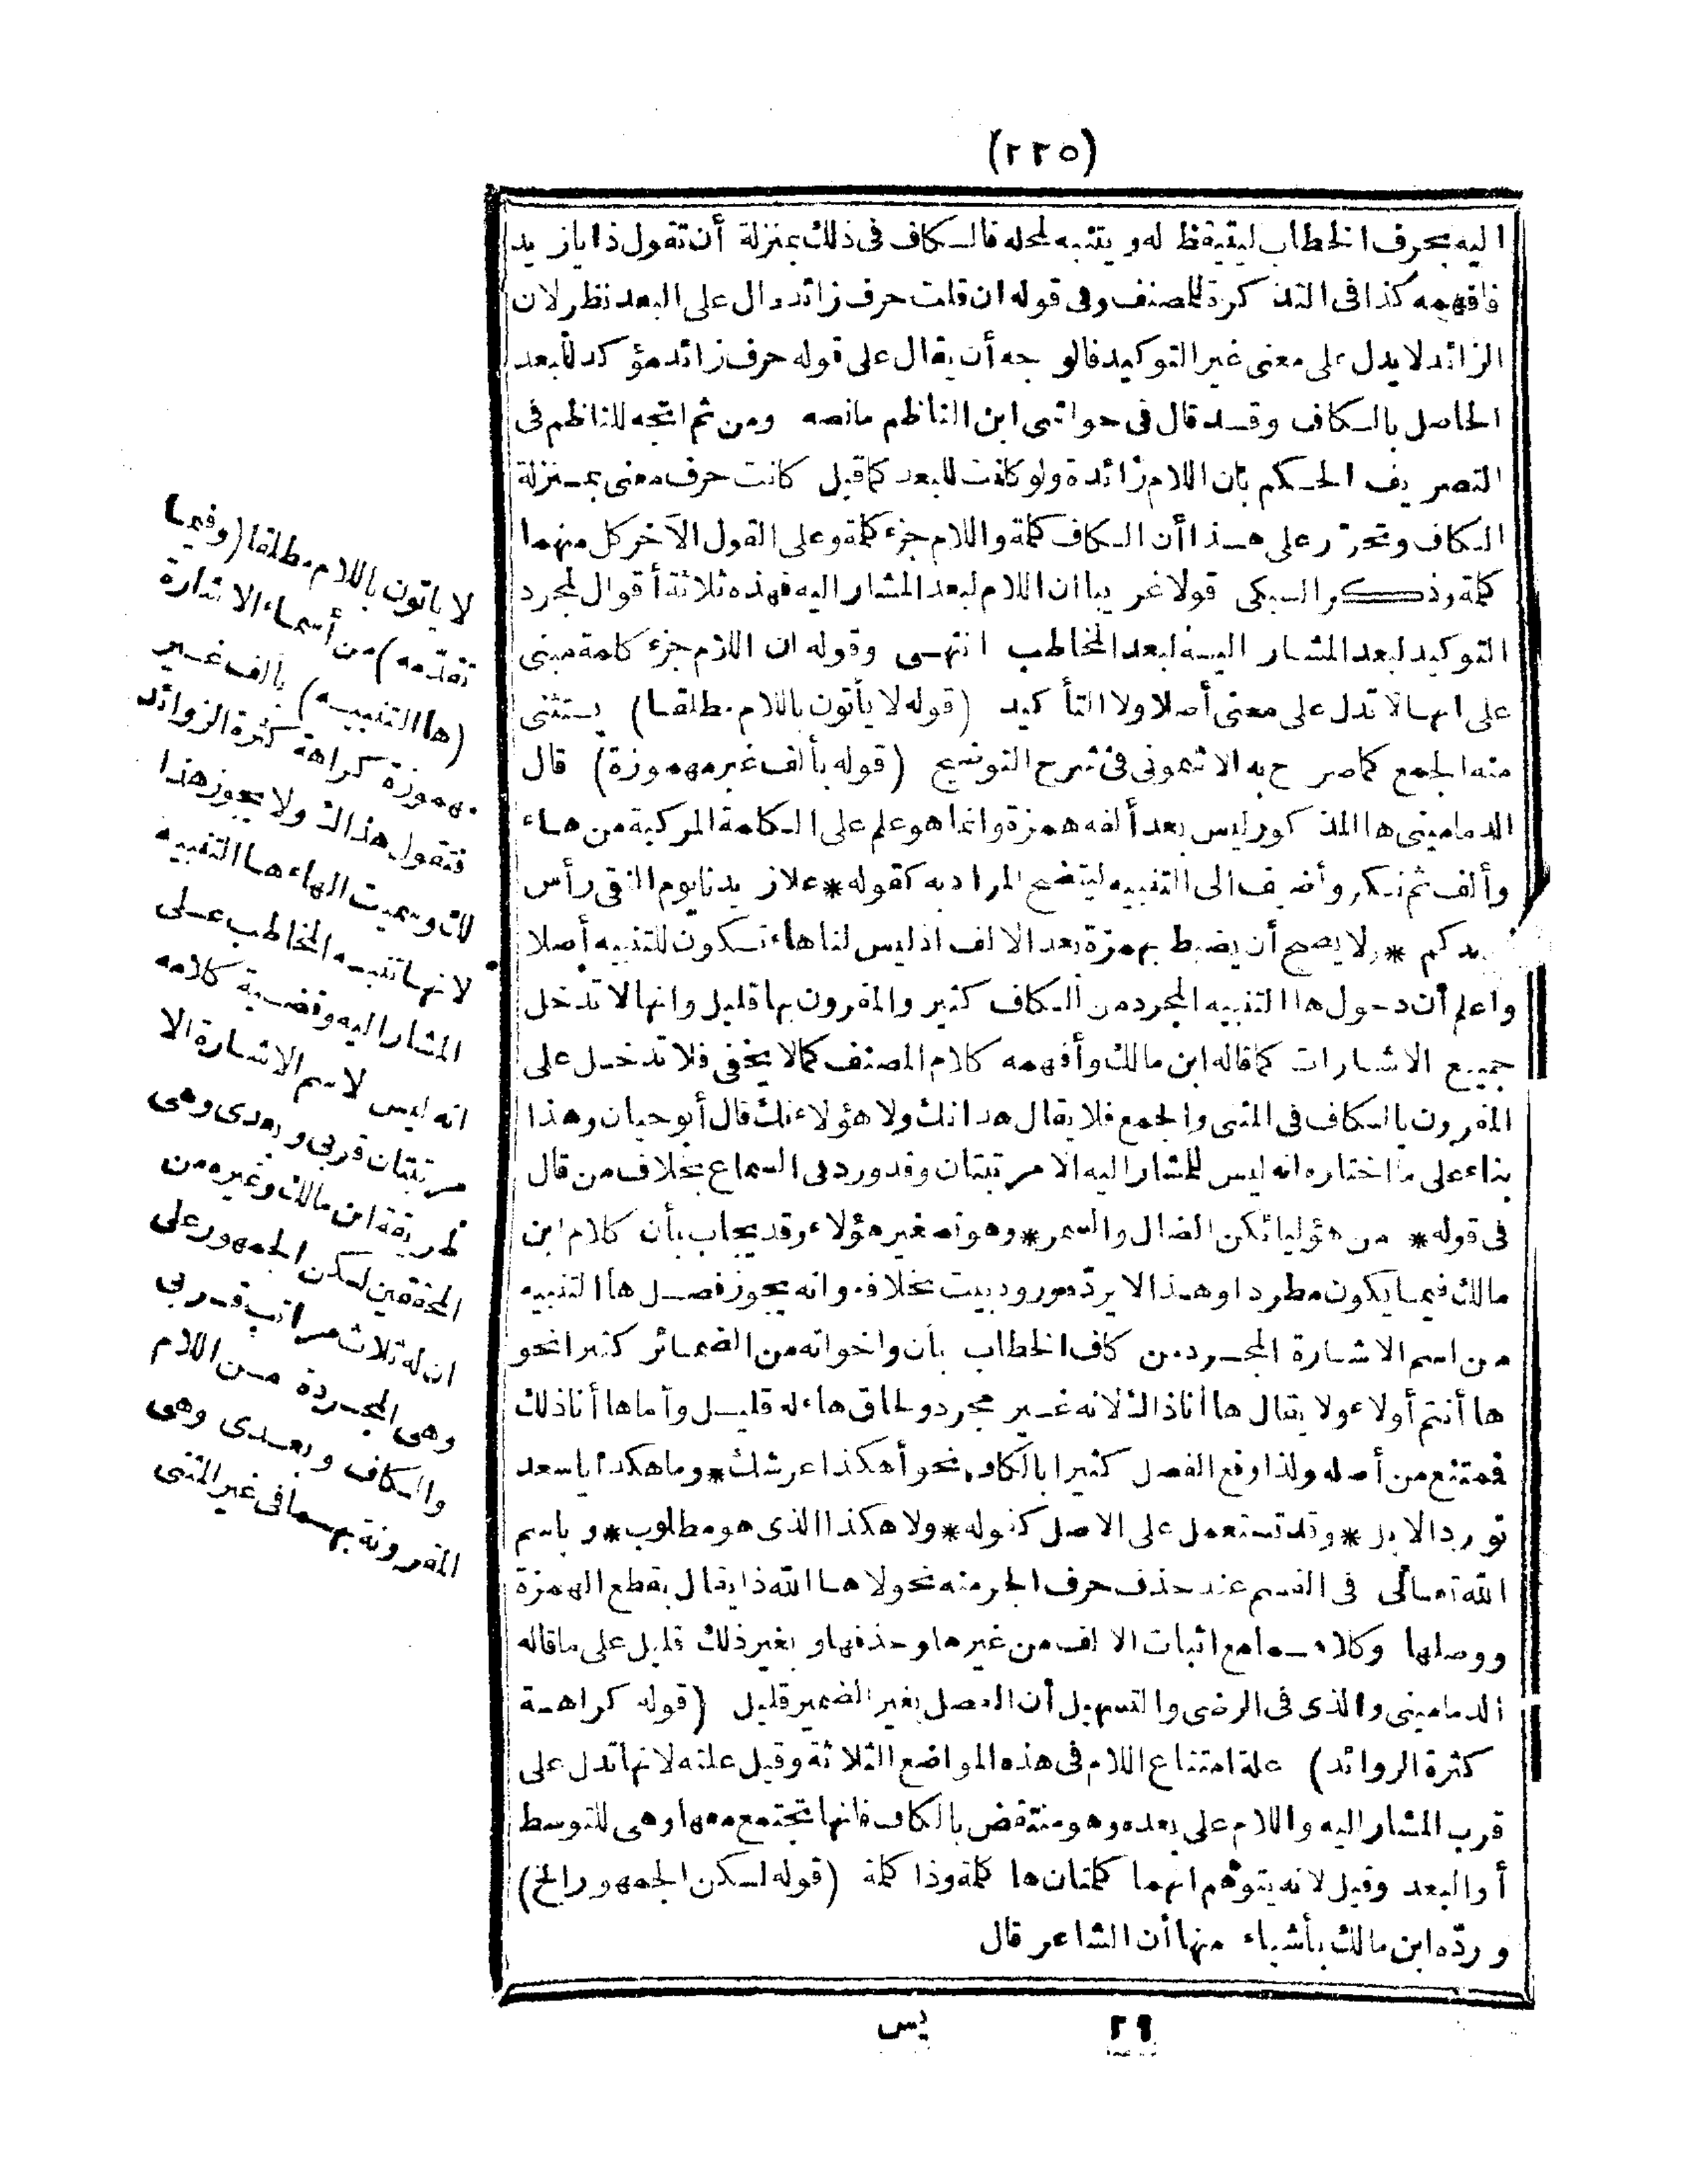 (٢٢٥)
اليه بحرف الخطاب ليتيقظ له ويتنبه لمحله فالكاف فى ذلك بمنزلة أن تقول ذا يازيد
فافهمه كذا فى التذكرة للمصنف وفى قوله ان قلت حرف زائد دال على البعد نظر لان
الزائد لا يدل على معنى غير التوكيد فالوجه أن يقال على قوله حرف زائد مؤكد للبعد
الحاصل بالكاف وقد قال فى حواشى ابن الناظم مانصه ومن ثم اتجه للناظم فى
التصريف الحكم بان اللام زائدة ولو كانت للبعد كما قيل كانت حرف معنى بمنزلة
الكاف وتحرر على هذا أن الكاف كلمة واللام جزء كلمة وعلى القول الآخر كل منهما
كلمة وذكر السبكى قولا غريبا ان اللام لبعد المشار اليه فهذه ثلاثة أقوال لمجرد
التوكيد لبعد المشار اليه لبعد المخاطب انتهى وقوله ان اللام جزء كلمة مبنى
على انها لا تدل على معنى أصلا ولا التأكيد (قوله لا يأتون باللام مطلقا) يستثنى
منه الجمع كما صرح به الاشمونى فى شرح التوضيح (قوله بألف غير مهموزة) قال
الدمامينى ها المذكور ليس بعد ألفه همزة وانما هو علم على الكلمة المركبة من هاء
وألف ثم نكر وأضيف الى التنبيه ليتضح المراد به كقوله * علا زيدنا يوم النقى رأس
زيدكم * ولا يصح أن يضبط بهمزة بعد الالف اذ ليس لنا هاء تكون للتنبيه أصلا
واعلم أن دخول ها التنبيه المجرد من الكاف كثير والمقرون بها قليل وانها لا تدخل
جميع الاشارات كما قاله ابن مالك وأفهمه كلام المصنف كما لا يخفى فلا تدخل على
المقرون بالكاف فى المثنى والجمع فلا يقال هذانك ولا هؤلاءك قال أبو حيان وهذا
بناء على ما اختاره انه ليس للمشار اليه الا مرتبتان وقد ورد فى السماع بخلاف من قال
فى قوله * من هؤليائكن الضال والسمر * وهو تصغير هؤلاء وقد يجاب بأن كلام ابن
مالك فيما يكون مطردا وهذا لا يردّه ورود بيت بخلافه وانه يجوز فصل ها التنبيه
من اسم الاشارة المجرد من كاف الخطاب بأن واخواته من الضمائر كثيرا نحو
ها أنتم أولاء ولا يقال ها أنا ذاك لانه غير مجرد ولحاق هاء له قليل وأما ها أنا ذلك
فممتنع من أصله ولذا وقع الفصل كثيرا بالكاف نحو أهكذا عرشك * وما هكذا ياسعد
تورد الابل * وقد تستعمل على الاصل كقوله * ولا هكذا الذى هو مطلوب * وباسم
الله تعالى فى القسم عند حذف حرف الجر منه نحو لا ها الله ذا يقال بقطع الهمزة
ووصلها وكلاهما مع اثبات الالف من غيرها وحذفها وبغير ذلك قليل على ما قاله
الدمامينى والذى فى الرضى والتسهيل أن الفصل بغير الضمير قليل (قوله كراهة
كثرة الزوائد) علة امتناع اللام فى هذه المواضع الثلاثة وقيل علته لانها تدل على
قرب المشار اليه واللام على بعده وهو منتقض بالكاف فانها تجتمع معها وهى للتوسط
أو البعد وقيل لانه يتوهم انهما كلمتان ها كلمة وذا كلمة (قوله لسكن الجمهور الخ)
وردّه ابن مالك بأشياء منها أن الشاعر قال
لا يأتون باللام مطلقا (وفيما
تقدّمه) من أسماء الاشارة
(ها التنبيه) بألف غير
مهموزة كراهة كثرة الزوائد
فتقول هذاك ولا يجوز هذا
لك وسميت الهاء ها التنبيه
لانها تنبه المخاطب على
المشار اليه وقضية كلامه
انه ليس لاسم الاشارة الا
مرتبتان قربى وبعدى وهى
طريقة ابن مالك وغيره من
المحققين لكن الجمهور على
ان له ثلاث مراتب قربى
وهى المجردة من اللام
والكاف وبعدى وهى
المقرونة بهما فى غير المثنى
٢٩ يس